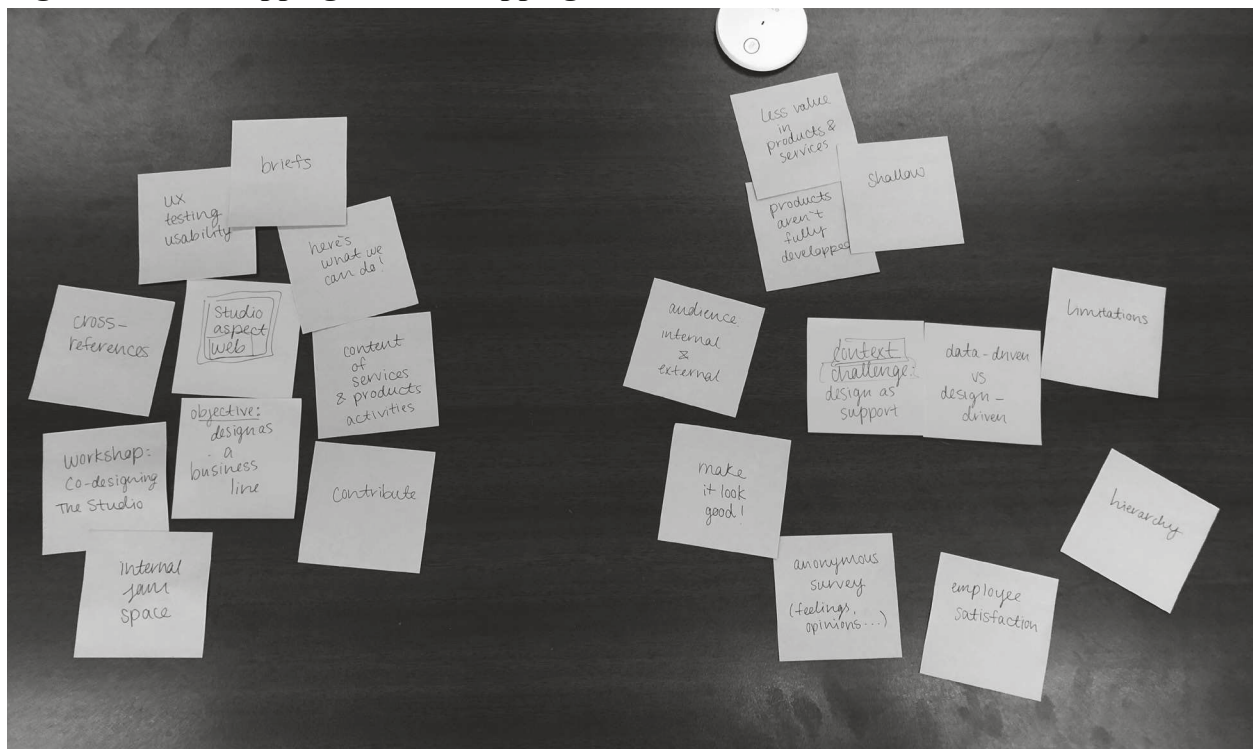 briefs
ux
testing
usability
here's
what we
can do!
cross-
references
Studio
aspect
web
content
of
services
& products
activities
objective:
design as
a
business
line
workshop:
co-designing
The Studio
contribute
internal
jam
space
less value
in
products &
services
shallow
products
aren't
fully
developped
audience
internal
&
external
context
challenge:
design as
support
data-driven
vs
design-
driven
limitations
make
it look
good!
hierarchy
anonymous
survey
(feelings,
opinions...)
employee
satisfaction